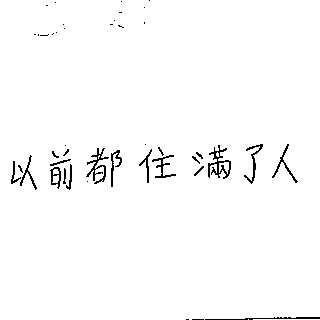 以前都住滿了人